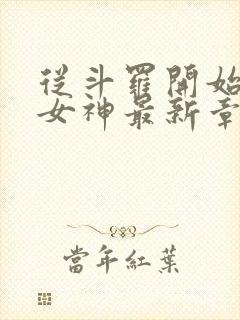 從斗羅開始
女神最新章
當年紅葉